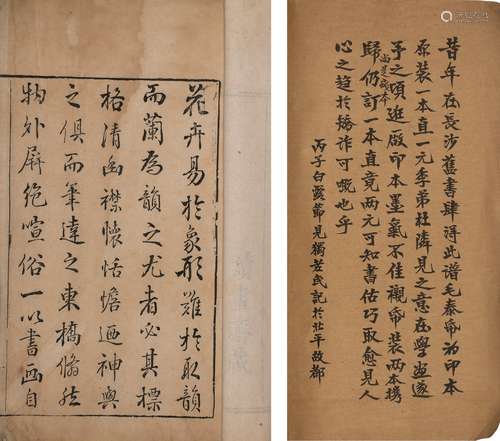 昔年在長沙舊書肆得此譜毛泰帋初印本
原裝一本直一元季弟杜隣見之意在學画遂
予之頃逛廠印本墨氣不佳襯帋裝兩本携
尚是殘本
歸仍訂一本直竟兩元可知書估巧取愈見人
心之趋於獪诈可嘅也乎
丙子白露節見獨民記於北平故都
花卉易於象形難於取韻
而蘭為韻之尤者必其標
格清幽襟懷恬憺迺神與
之俱而筆達之東橋翛然
物外屏絶喧俗一以書画自